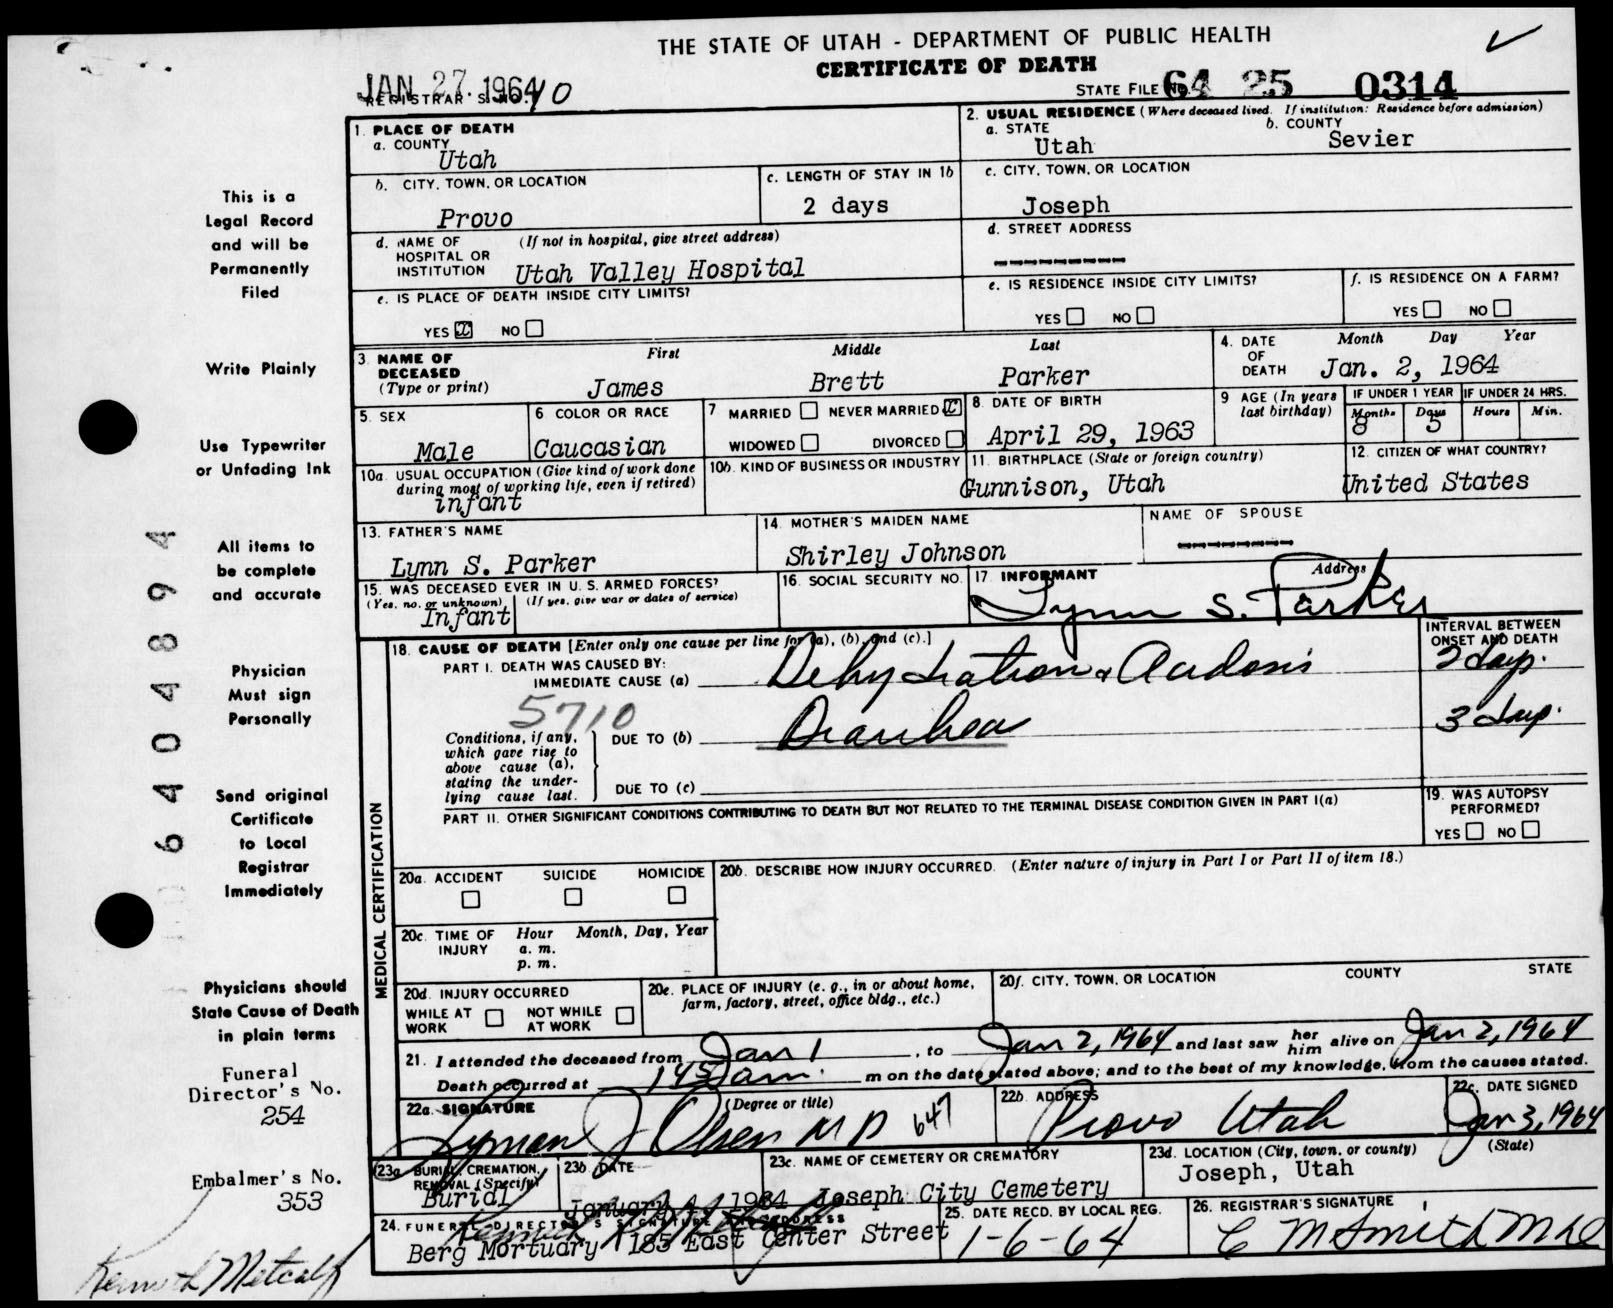 THE STATE OF UTAH - DEPARTMENT OF PUBLIC HEALTH
CERTIFICATE OF DEATH
JAN 27 1964
REGISTRAR'S NO. 40
STATE FILE NO. 64 25 0314
1. PLACE OF DEATH
a. COUNTY
Utah
2. USUAL RESIDENCE (Where deceased lived. If institution: Residence before admission)
a. STATE
Utah
b. COUNTY
Sevier
b. CITY, TOWN, OR LOCATION
Provo
c. LENGTH OF STAY IN 1b
2 days
c. CITY, TOWN, OR LOCATION
Joseph
d. NAME OF HOSPITAL OR INSTITUTION
(If not in hospital, give street address)
Utah Valley Hospital
d. STREET ADDRESS
e. IS PLACE OF DEATH INSIDE CITY LIMITS?
YES X NO
e. IS RESIDENCE INSIDE CITY LIMITS?
YES NO
f. IS RESIDENCE ON A FARM?
YES NO
3. NAME OF DECEASED
(Type or print)
First Middle Last
James Brett Parker
4. DATE OF DEATH
Month Day Year
Jan. 2, 1964
5. SEX
Male
6 COLOR OR RACE
Caucasian
7 MARRIED NEVER MARRIED X
WIDOWED DIVORCED
8. DATE OF BIRTH
April 29, 1963
9 AGE (In years last birthday)
IF UNDER 1 YEAR
Months Days
8 5
IF UNDER 24 HRS.
Hours Min.
10a. USUAL OCCUPATION (Give kind of work done
during most of working life, even if retired)
infant
10b. KIND OF BUSINESS OR INDUSTRY
11. BIRTHPLACE (State or foreign country)
Gunnison, Utah
12. CITIZEN OF WHAT COUNTRY?
United States
13. FATHER'S NAME
Lynn S. Parker
14. MOTHER'S MAIDEN NAME
Shirley Johnson
NAME OF SPOUSE
15. WAS DECEASED EVER IN U. S. ARMED FORCES?
(Yes, no, or unknown) (If yes, give war or dates of service)
Infant
16. SOCIAL SECURITY NO.
17. INFORMANT Address
Lynn S. Parker
18. CAUSE OF DEATH [Enter only one cause per line for (a), (b), and (c).]
PART I. DEATH WAS CAUSED BY:
IMMEDIATE CAUSE (a) Dehydration & Acidosis
INTERVAL BETWEEN
ONSET AND DEATH
2 days.
5710
Conditions, if any,
which gave rise to
above cause (a),
stating the under-
lying cause last.
DUE TO (b) Diarrhea
3 days.
DUE TO (c)
PART II. OTHER SIGNIFICANT CONDITIONS CONTRIBUTING TO DEATH BUT NOT RELATED TO THE TERMINAL DISEASE CONDITION GIVEN IN PART I(a)
19. WAS AUTOPSY
PERFORMED?
YES NO
MEDICAL CERTIFICATION
20a. ACCIDENT SUICIDE HOMICIDE
20b. DESCRIBE HOW INJURY OCCURRED. (Enter nature of injury in Part I or Part II of item 18.)
20c. TIME OF INJURY
Hour Month, Day, Year
a. m.
p. m.
20d. INJURY OCCURRED
WHILE AT WORK NOT WHILE AT WORK
20e. PLACE OF INJURY (e. g., in or about home,
farm, factory, street, office bldg., etc.)
20f. CITY, TOWN, OR LOCATION COUNTY STATE
21. I attended the deceased from Jan 1, to Jan 2, 1964 and last saw her him alive on Jan 2, 1964
Death occurred at 145 am. m on the date stated above; and to the best of my knowledge, from the causes stated.
22a. SIGNATURE (Degree or title)
Lyman J Olsen MD 647
22b. ADDRESS
Provo Utah
22c. DATE SIGNED
Jan 3, 1964
23a. BURIAL, CREMATION,
REMOVAL (Specify)
Burial
23b. DATE
January 4, 1964
23c. NAME OF CEMETERY OR CREMATORY
Joseph City Cemetery
23d. LOCATION (City, town, or county) (State)
Joseph, Utah
24. FUNERAL DIRECTOR'S SIGNATURE AND ADDRESS
Berg Mortuary 185 East Center Street
25. DATE RECD. BY LOCAL REG.
1-6-64
26. REGISTRAR'S SIGNATURE
C M Smith
This is a
Legal Record
and will be
Permanently
Filed
Write Plainly
Use Typewriter
or Unfading Ink
All items to
be complete
and accurate
Physician
Must sign
Personally
Send original
Certificate
to Local
Registrar
Immediately
Physicians should
State Cause of Death
in plain terms
Funeral
Director's No.
254
Embalmer's No.
353
Kenneth Metcalf
0 6 4 0 4 8 9 4